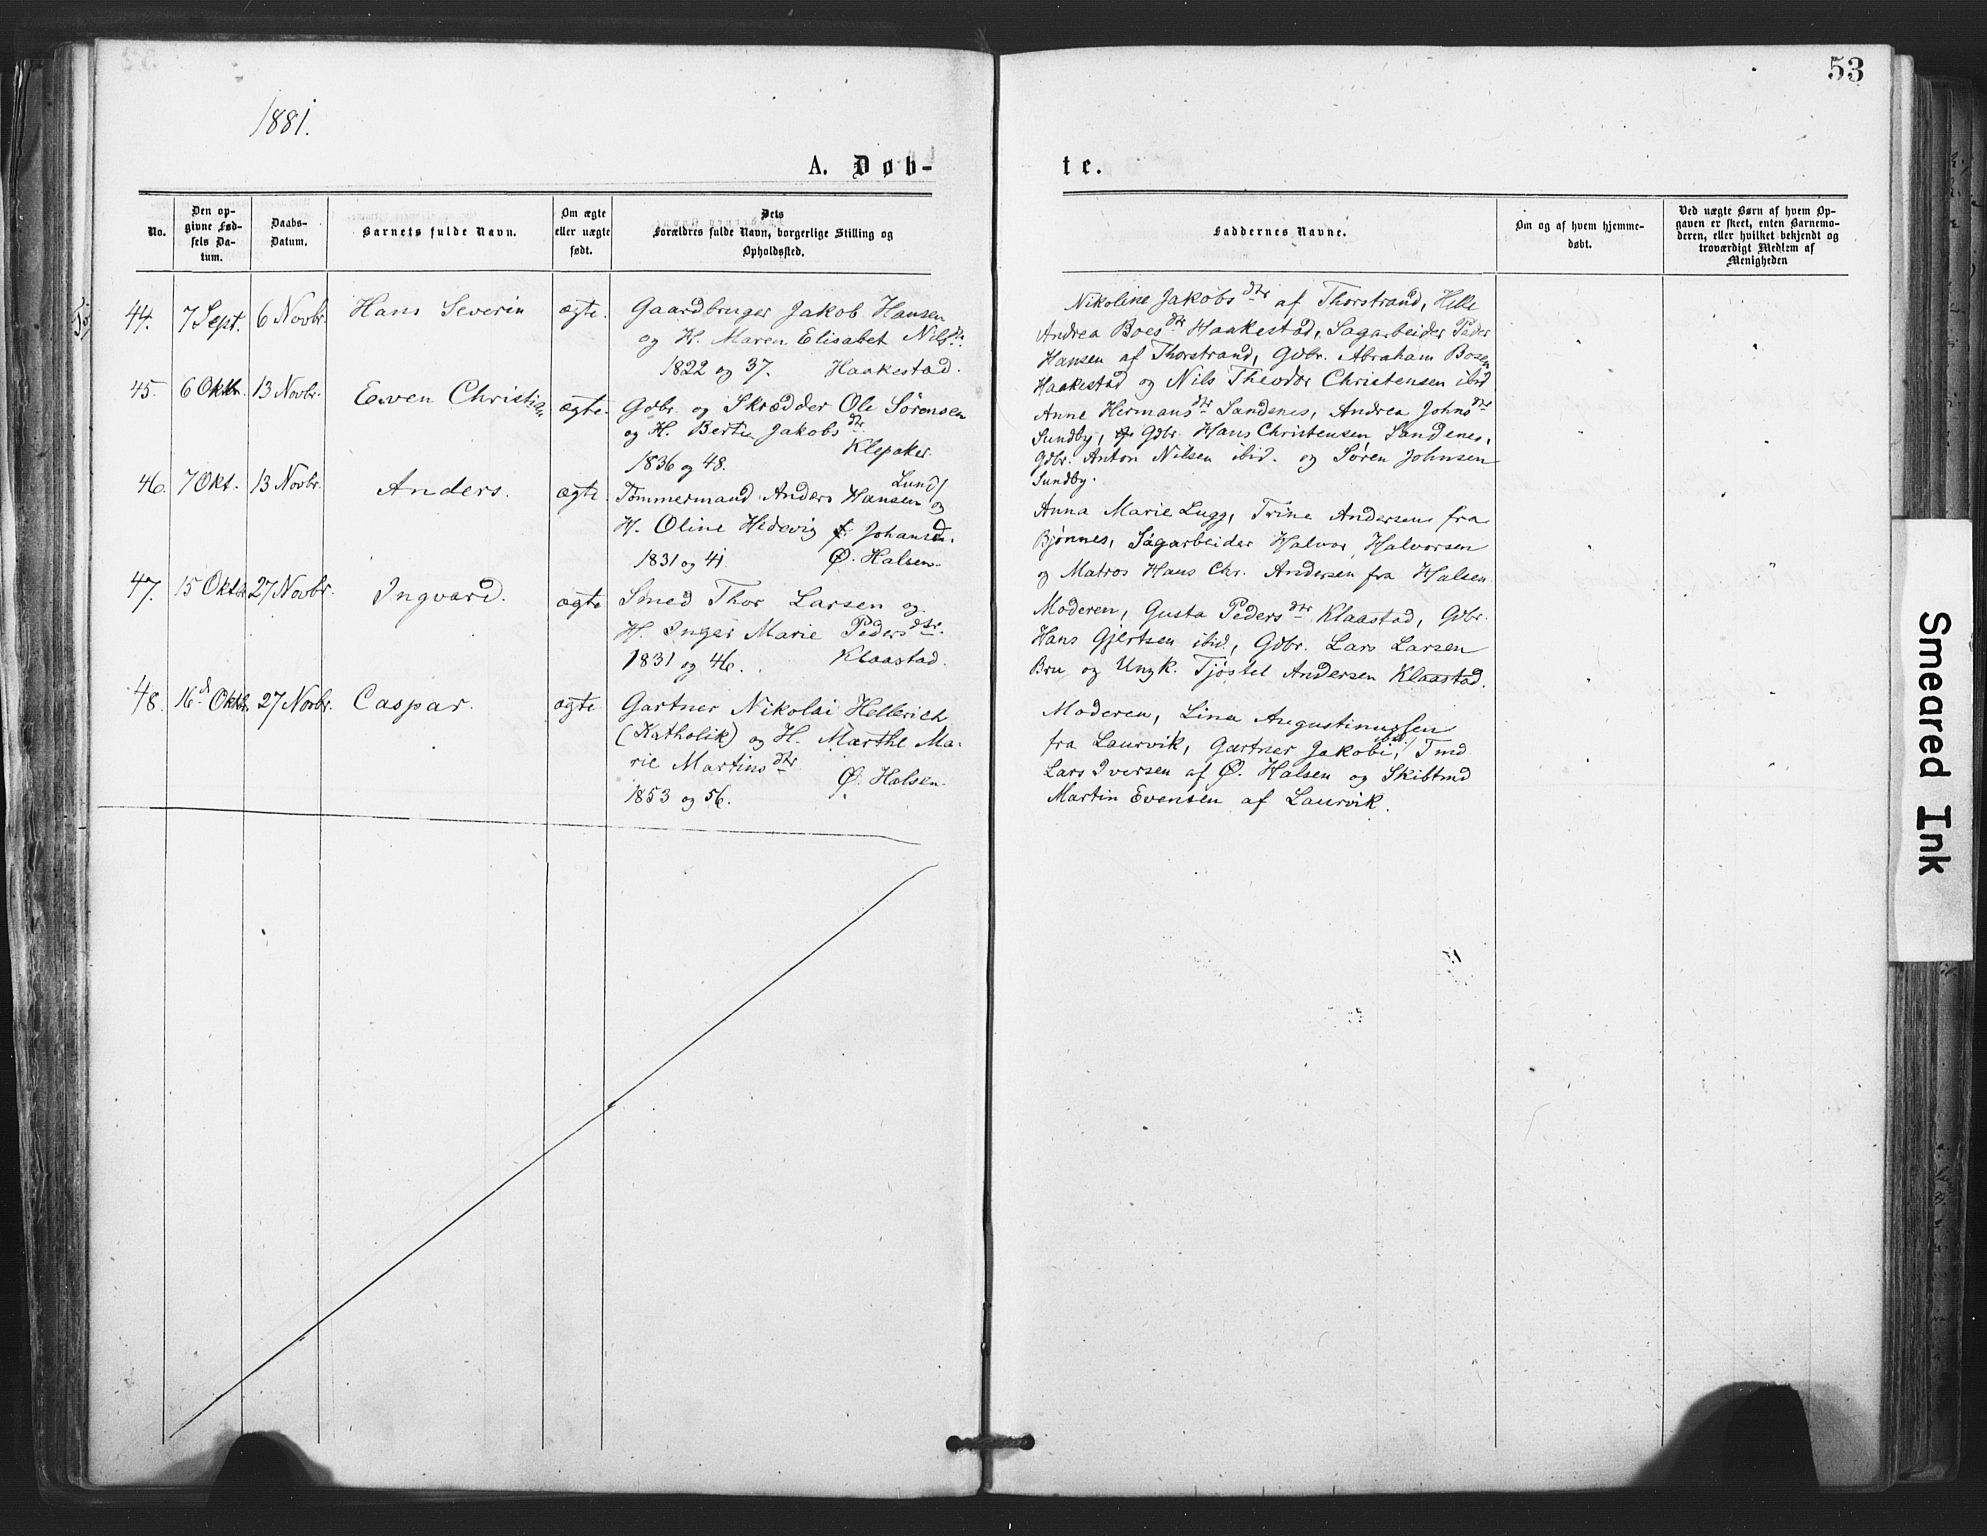 53
1881.
A. Døb-
te.
No.
Den op-
givne Fød-
sels Da-
tum.
Daabs-
Datum.
Barnets fulde Navn.
Om ægte
eller uægte
født.
Dets
Forældres fulde Navn, borgerlige Stilling og
Opholdssted.
Faddernes Navne.
Om og af hvem hjemme-
døbt.
Ved uægte Børn af hvem Op-
gaven er skeet, enten Barnemo-
deren, eller hvilket bekjendt og
troværdigt Medlem af
Menigheden
44. 7 Sept. 6 Novbr. Hans Severin ægte. Gaardbruger Jakob Hansen
og H. Maren Elisabet Nilsdtr.
1822 og 37. Haakestad.
Nikoline Jakobsdtr af Thorstrand, Helle
Andrea Boesdtr Haakestad, Sagarbeider Peder
Hansen af Thorstrand, Gdbr. Abraham Bosen
Haakestad og Nils Theodor Christensen ibid
45. 6 Oktbr. 13 Novbr. Even Christian ægte. Gdbr. og Skrædder Ole Sørensen
og H. Berte Jakobsdtr
Klepaker
1836 og 48.
Anne Hermansdtr Sandenes, Andrea Johnsdtr
Sundby, Gdbr. Hans Christensen Sandenes,
Gdbr. Anton Nilsen ibid. og Søren Johnsen
Sundby.
46. 7 Okt. 13 Novbr. Anders. ægte. Lund/
Tømmermand Anders Hansen og
H. Oline Hedevig f. Johansd.
1831 og 41. Ø. Halsen.
Anna Marie Lugg, Trine Andersens fra
Bjønnes, Sagarbeider Halvor Halvorsen
og Matros Hans Chr. Andersen fra Halsen
47. 15 Oktb. 27 Novbr. Ingvard. ægte Smed Thor Larsen og
H. Inger Marie Pedersdtr.
1831 og 46. Klaastad.
Moderen, Gusta Pedersdtr Klaastad, Gdbr.
Hans Gjertsen ibid., Gdbr. Lars Larsen
Bru og Ungk. Tjøstel Andersen Klaastad.
48. 16d Oktb. 27 Novbr. Caspar. ægte Gartner Nikolai Hellerich
(Katholik) og H. Marthe Ma-
rie Martinsdtr
Ø. Halsen.
1853 og 56.
Moderen, Lina Augustinussen
fra Laurvik, Gartner Jakobi, ibid/ Tmd
Lars Iversen af Ø. Halsen og Skibtmd
Martin Evensen af Laurvik.
Smeared Ink